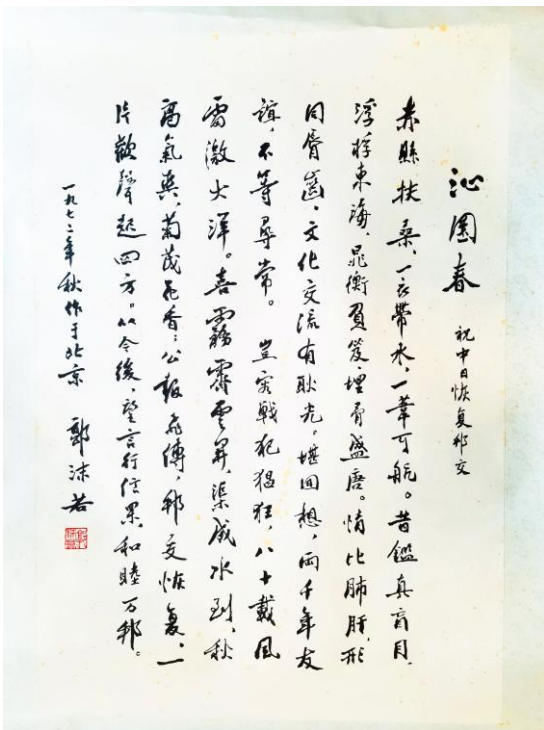 沁園春 祝中日恢复邦交
赤縣扶桑、一衣帶水、一葦可航。昔鑑真盲目、
浮桴東海、晁衡負笈、埋骨盛唐。情比肺肝、形
同脣齒、文化交流有耿光。堪回想、兩千年友
誼、不等尋常。 豈容戰犯猖狂、八十載風
雷激大洋。喜霧霽雲昇、渠成水到、秋
高氣爽、菊茂花香；公報飛傳、邦交恢复、一
片歡聲起四方。从今後、望言行信果、和睦万邦。
一九七二年秋作于北京 郭沫若